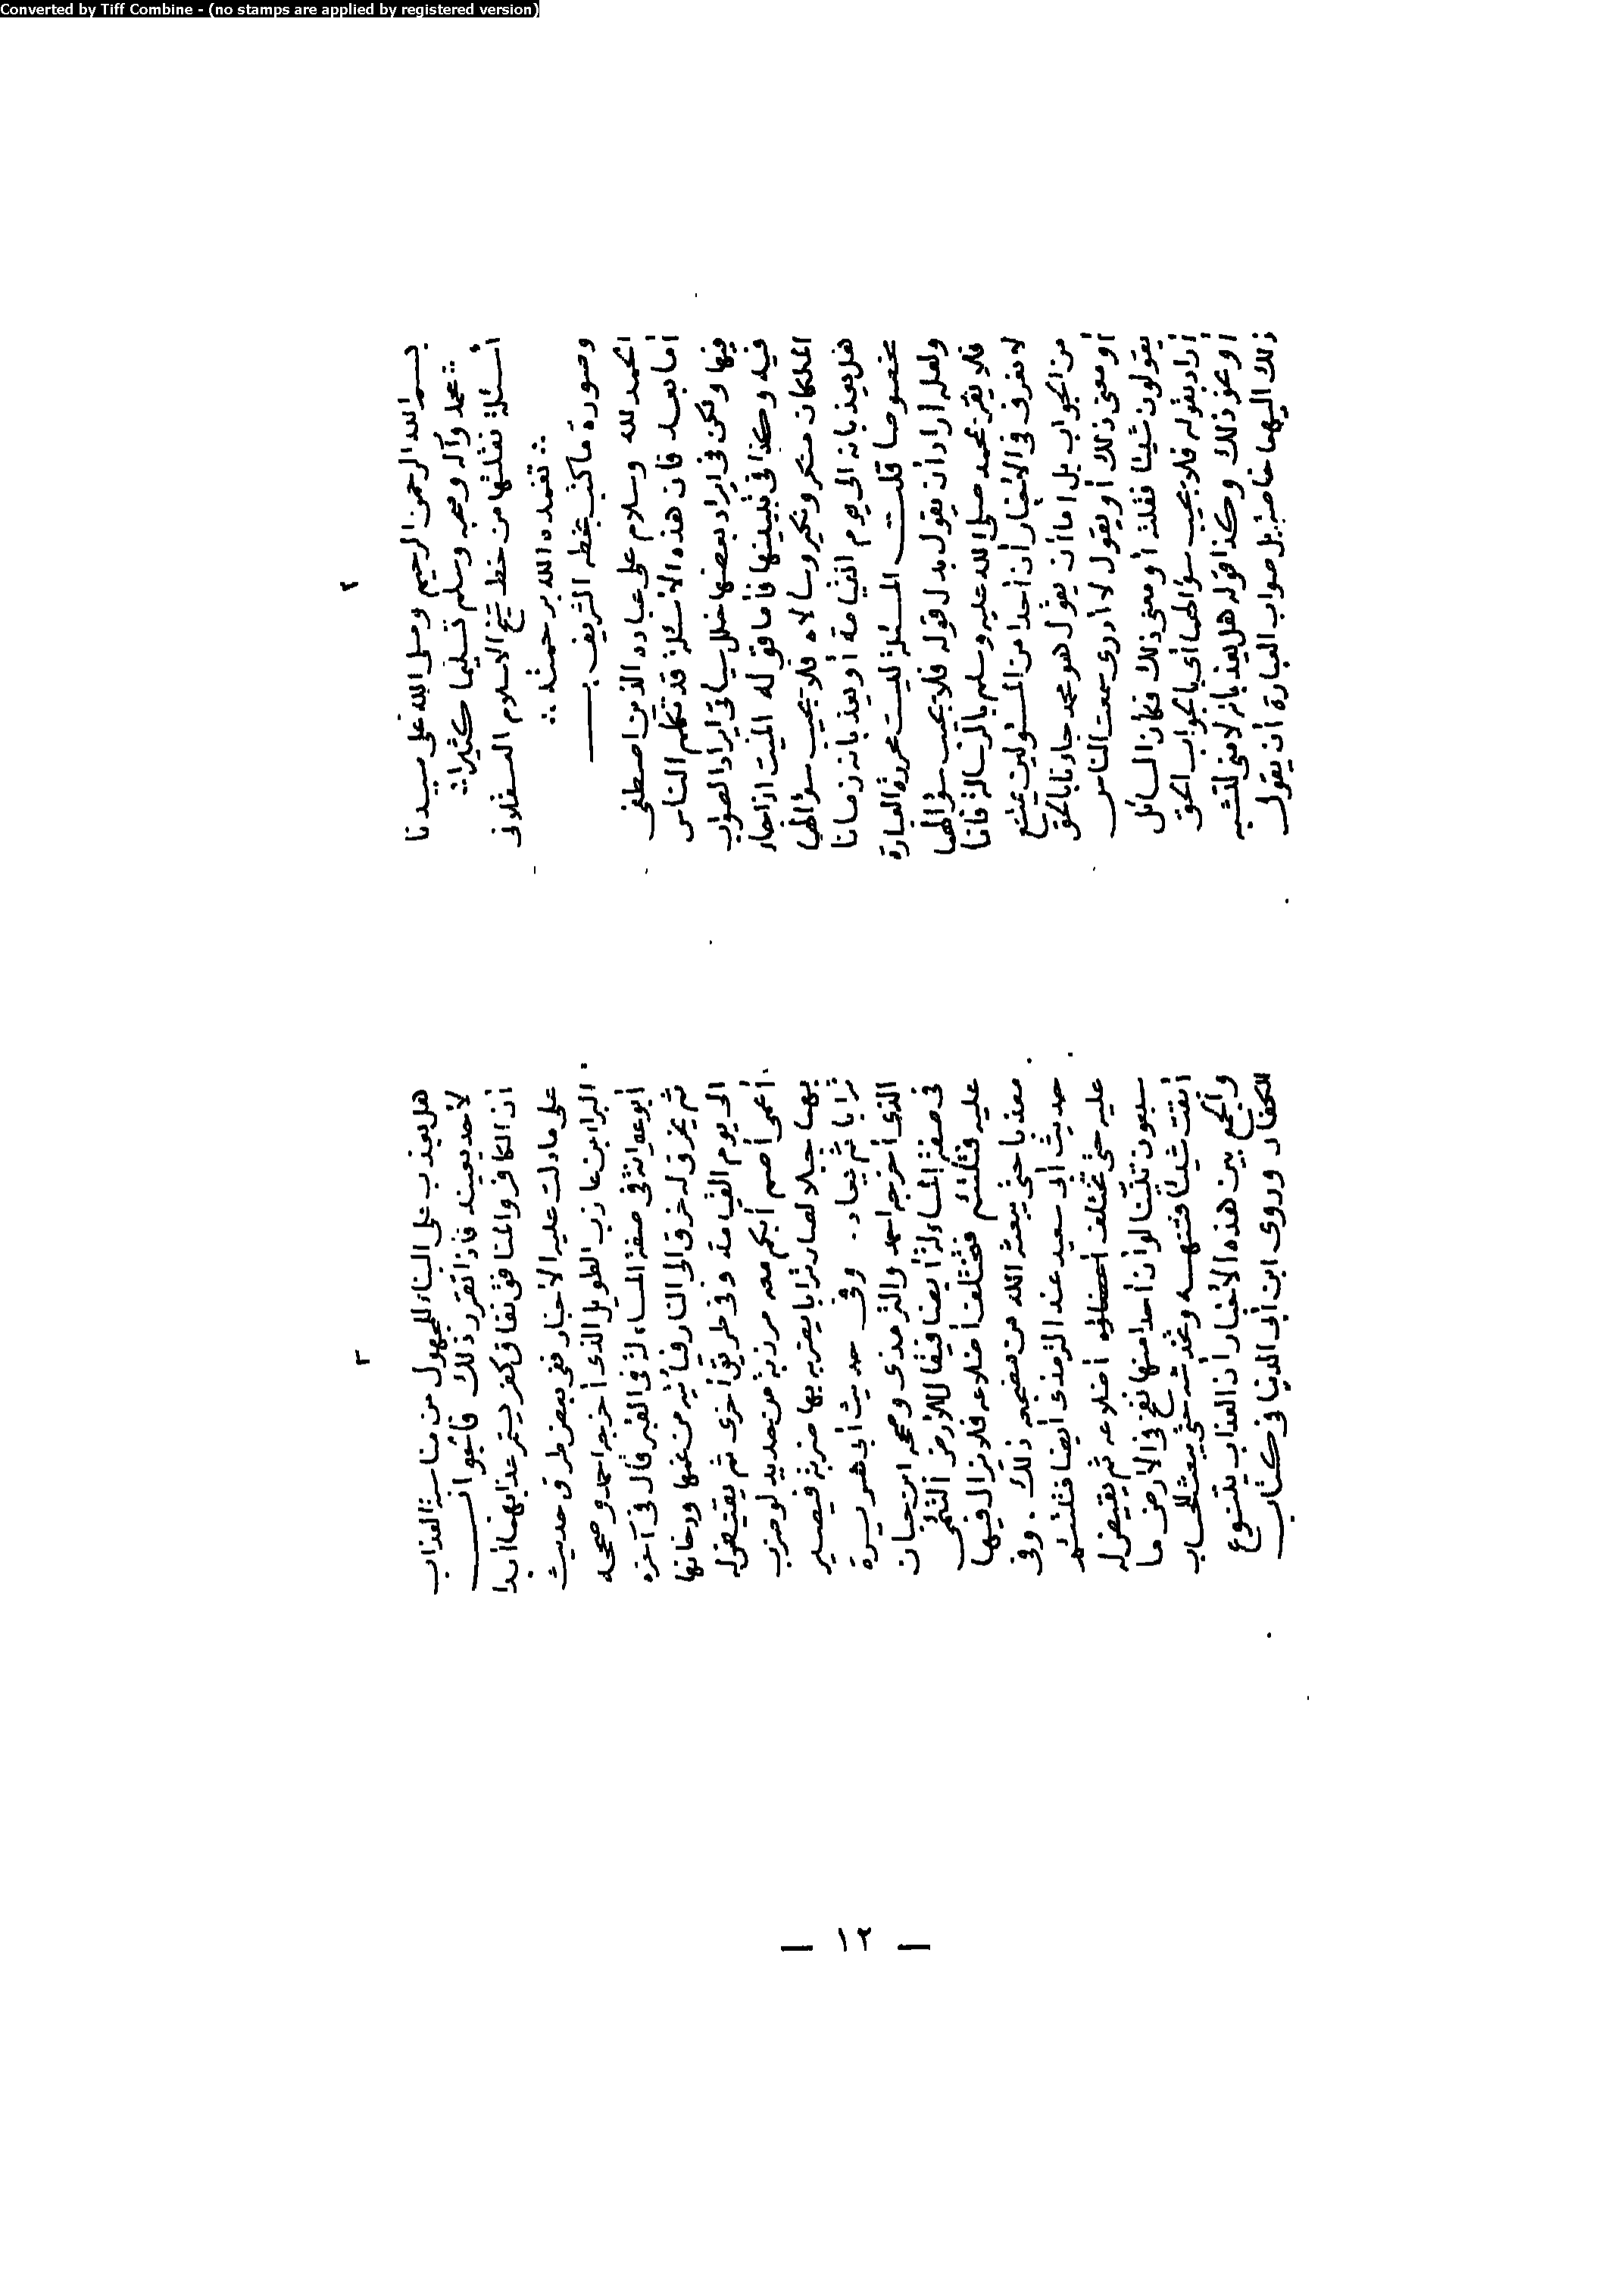 Converted by Tiff Combine - (no stamps are applied by registered version)
٢
بسم الله الرحمن الرحيم وصلى الله على سيدنا
محمد وآله وصحبه وسلم تسليما كثيرا
أسئلة نقلتها من خط شيخ الاسلام العسقلانى
تغمده الله برحمته
وصورة ما كتب بخطه الشريف
الحمد لله وسلام على عباده الذين اصطفى
أما بعد فان هذه الأسئلة قد تكلم الناس
فيها ولكن فى ايراد بعضها خلل سيأتى ايراد الصواب
فيه وكذا فى تبيينها فأما قوله الميت اذا جاء
الملكان منكر ونكير وسألاه فلا يجيب سؤالهما
هل يعذبانه الى يوم القيامة أو يعذبانه زمانا
مخصوصا قلت المسئلة ليست محررة العبارة
ولعله أراد أن يقول بدل قوله فلا يجيب سؤالهما
فلا يقر بمحمد صلى الله عليه وسلم بالرسالة فانا
لا نعرف فى الأخبار أن أحدا من المسئولين يمتنع
من الجواب بل اما أن يقول هو محمد جاءنا بالحق
أو معنى ذلك أو يقول لا أدرى سمعت الناس
يقولون شيئا فقلته أو معنى ذلك فكأن السائل
أراد بقوله فلا يجيب سؤالهما أى بالجواب الحق
أو نحو ذلك وكذا قوله هل يعذبانه لا معنى
ذلك اليهما خاصة بل صواب العبارة أن يقول
٣
هل يعذب على البناء للمجهول من مناسبة العذاب
لأحد بعينه فاذا تقرر ذلك فالجواب
أن الكافر والمنافق نفاق كفر يستمر عذابهما أبدا
على ما دلت عليه الأخبار ففى بعض طرق حديث
البراء بن عازب الطويل الذى أخرجه أحمد وصححه
أبو عوانة فى صفة المساءلة فى القبر قال فى آخره
ثم يخرق له خرق الى النار فيأتيه من غمها ودخانها
الى يوم القيامة وفى طريق أخرى ثم يقيض له
أعمى أصم أبكم معه مرزبة من حديد لو ضرب
بها جبلا لصار ترابا يضربه بها ضربة فيصير
ترابا ثم يعاد. وفى حديث أبى هريرة
الذى أخرجه أحمد والترمذى وصححه ابن حبان
فى صفة المساءلة أيضا فيقال للأرض التئمى
عليه فتلتئم فتختلف أضلاعه فلا يزال فيها
معذبا حتى يبعثه الله من مضجعه ذلك. وفى
حديث أبى سعيد عند الترمذى أيضا فتلتئم
عليه حتى تختلف أضلاعه ثم يقيض له
سبعون تنينا لو أن أحدا منها نفخ فى الأرض ما
أنبتت شيئا فتنهسه وتخدشه حتى يبعث للحساب
والجمع بين هذه الأخبار أن العذاب يتنوع
للكفار وروى ابن أبى الدنيا فى كتاب
— ١٢ —